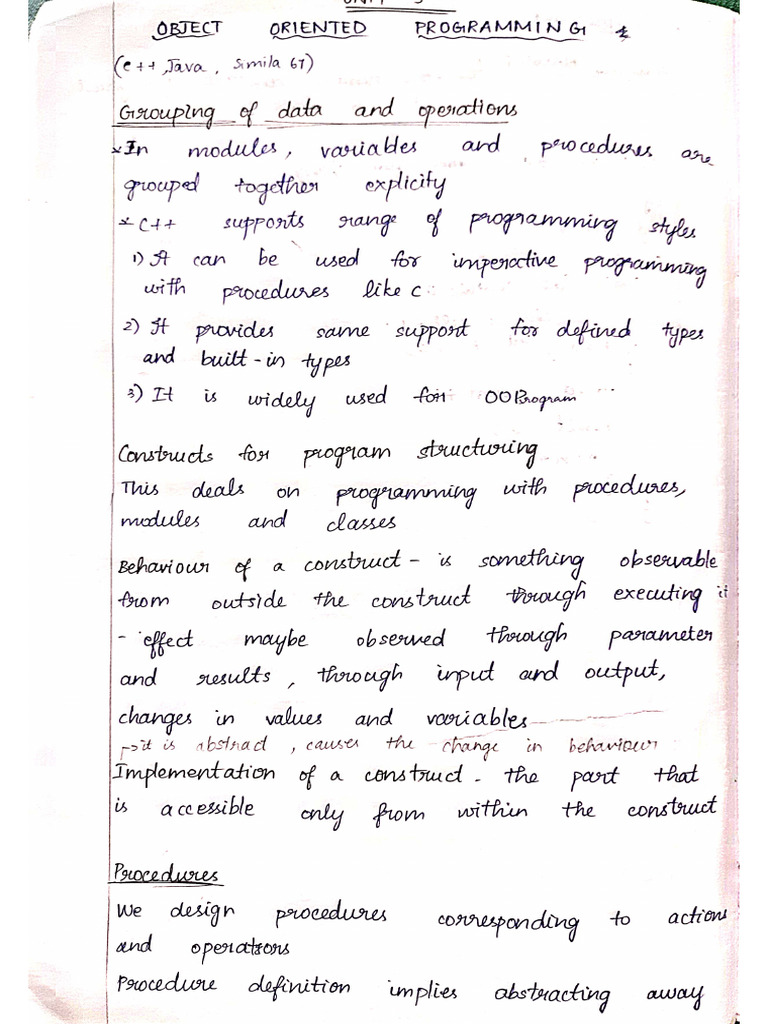 OBJECT ORIENTED PROGRAMMING
(C++, Java, Simila 67)
Grouping of data and operations
*In modules, variables and procedures are
grouped together explicity
* C++ supports range of programming styles
1) It can be used for imperative programming
with procedures like C.
2) It provides same support for defined types
and built-in types
3) It is widely used for OO Program
Constructs for program structuring
This deals on programming with procedures,
modules and classes
Behaviour of a construct - is something observable
from outside the construct through executing it
- effect maybe observed through parameter
and results, through input and output,
changes in values and variables
→it is abstract, causes the change in behaviour
Implementation of a construct - the part that
is accessible only from within the construct
Procedures
We design procedures corresponding to actions
and operations
Procedure definition implies abstracting away